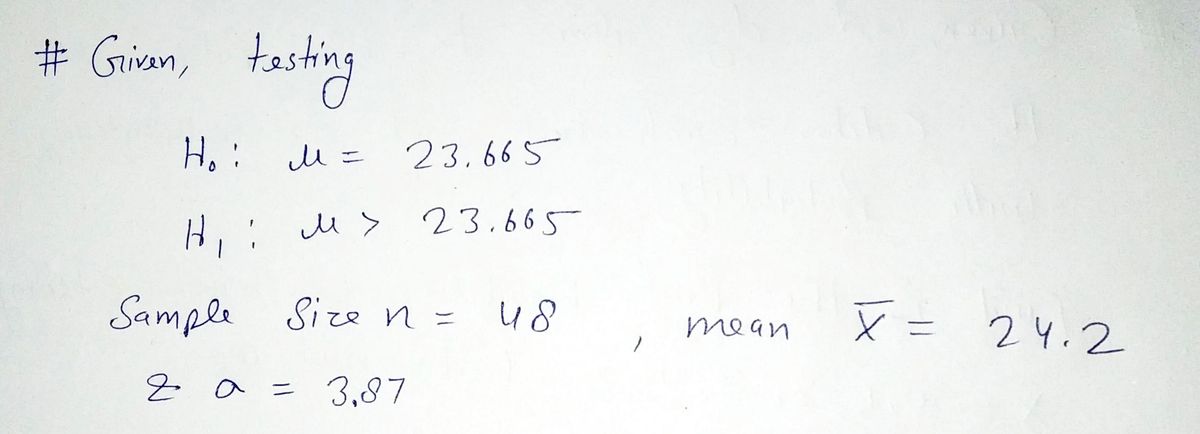 # Given, testing
H₀: μ = 23.665
H₁: μ > 23.665
Sample Size n = 48, mean X̅ = 24.2
z a = 3.87